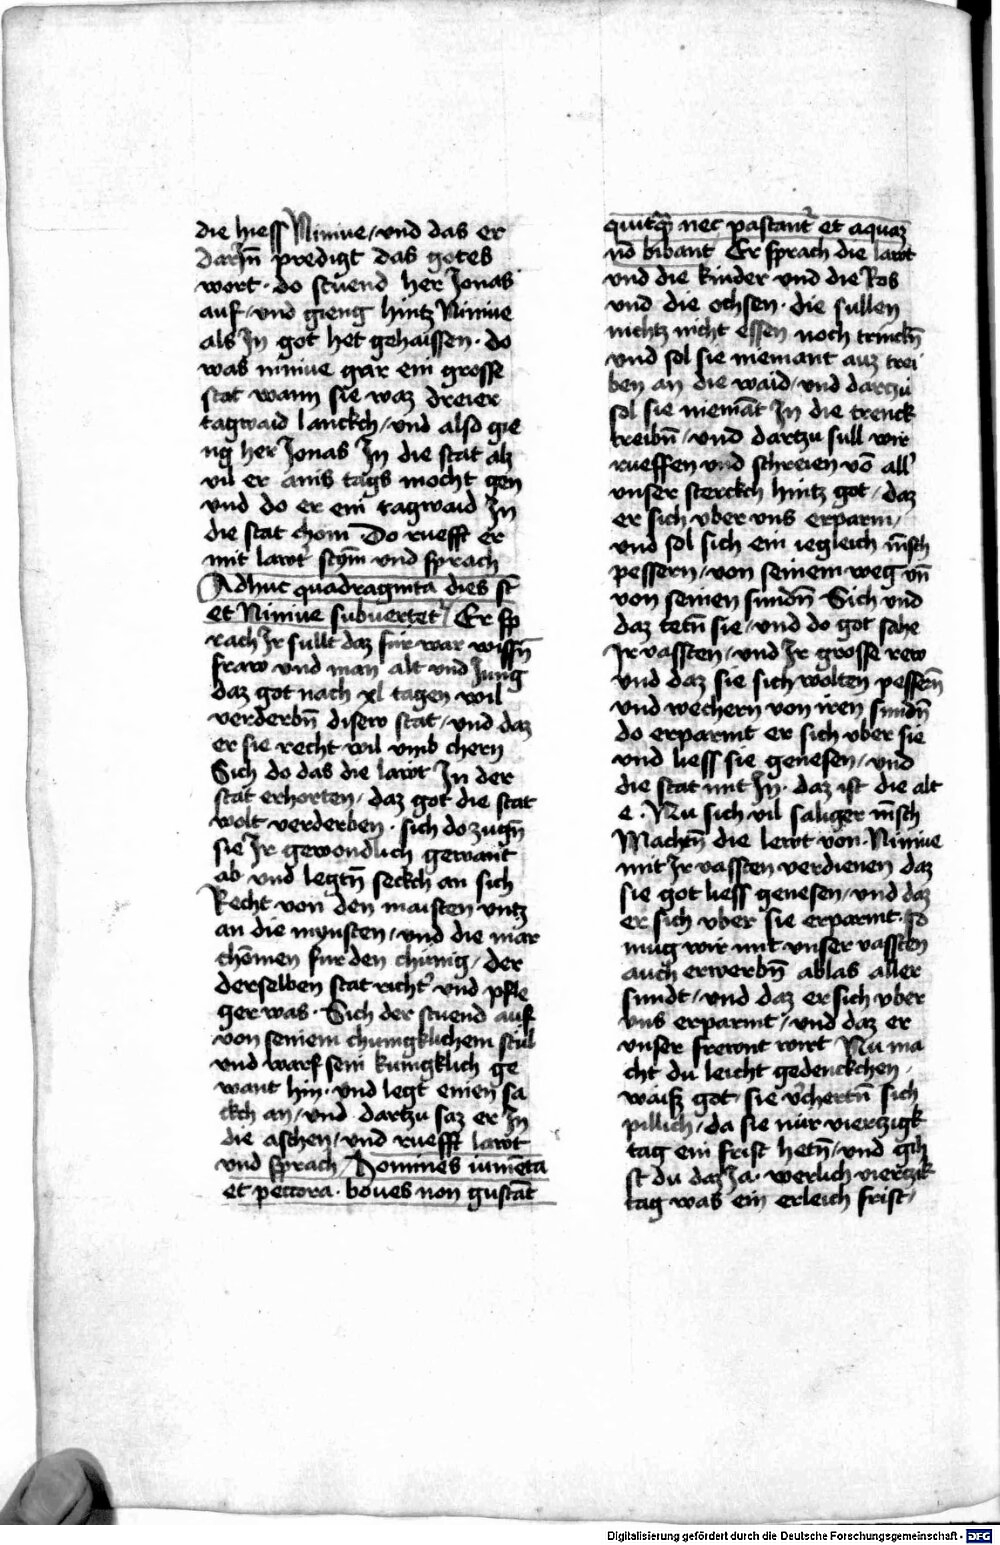 die hiess Niniue / vnd das er
darJn̄ predigt das gotes
wort · do stuend her Jonas
auf / vnd gieng hintz Niniue
als Jn got het gehaissen · do
was niniue gar ein grosse
stat wann sie waz dreier
tagwaid lanckch / vnd also gie
ng her Jonas Jn die stat alz
vil er ains tags mocht gen
vnd do er ein tagwaid Jn
die stat chom Do ruefft er
mit lawt' stȳm vnd sprach
Adhuc quadraginta dies st̄
et Niniue subuertet' Er sp
rach Jr sullt daz für war wissn̄
fraw vnd man alt vnd Jung
daz got nach xl tagen wil
verderbn̄ disew stat / vnd daz
er sie recht wil vmb chern
Sich do das die lawt Jn der
stat erhorten / daz got die stat
wolt verderben · sich do zugn̄
sie Jr gewondlich gewant
ab vnd legtn̄ seckch an sich
Recht von den maisten vntz
an die mynsten / vnd die mär
chōmen fur den chünig / der
derselben stat richt' vnd pfle
ger was · Sich der stuend auf
von seinem chunigklichem stul
vnd warf sein kunigklich ge
want hin · vnd legt einen sa
ckch an / vnd dartzu saz er Jn
die aschen / vnd ruefft lawt
vnd sprach / Homines iumēta
et peccora · boues non gustāt
quitq̄ nec pascant' et aquaz
nō bibant Er sprach die lawt
vnd die kinder vnd die Ros
vnd die ochsen · die sullen
nichtz nicht essen noch trinckn̄
vnd sol sie niemant auz trei
ben an die waid / vnd dartzu
sol sie niemāt Jn die trenck
treibn̄ / vnd dartzu sull wir
rueffen vnd schreien vō all'
vnser sterckch hintz got / daz
er sich vber vns erparm /
vnd sol sich ein iegleich m̄sch
pessern / von seinem weg vn̄
von seinen sundn̄ Sich vnd
daz tetn̄ sie / vnd do got sahe
Jr vassten / vnd Jr grosse rew
vnd daz sie sich wolten pessern̄
vnd wechern von iren sundn̄
do erparmt er sich vber sie
vnd liess sie genesen / vnd
die stat mit Jn · daz ist die alt
e · Nu sich vil saliger m̄sch
Machtn̄ die lewt von · Niniue
mit Jr vassten verdienen daz
sie got liess genesen / vnd daz
er sich vber sie erparmt · so
mug wir mit vnser vassten
auch erwerbn̄ ablas aller
sundt / vnd daz er sich vber
vns erparmt / vnd daz er
vnser frewnt wirt Nu ma
cht du leicht gedenckchen /
waisz got sie v'chertn̄ sich
pillich / da sie nür vierczigk
tag ein frist hetn̄ / vnd gih
st du daz Ja · werlich vierczik
tag was ein erleich frist /
Digitalisierung gefördert durch die Deutsche Forschungsgemeinschaft - DFG